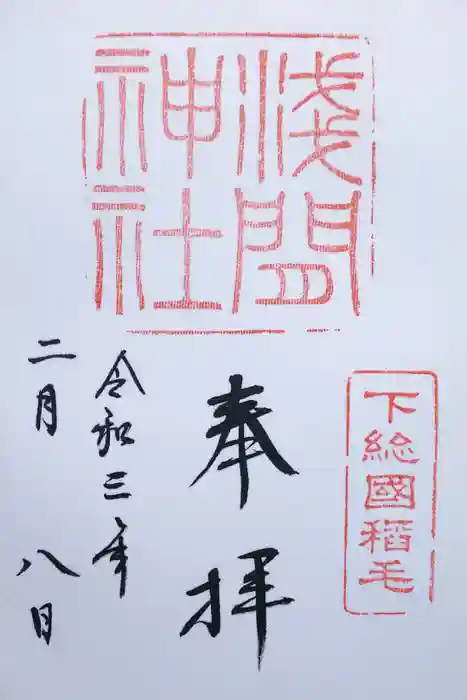 浅間
神社
下総國稻毛
奉拝
令和三年
二月八日